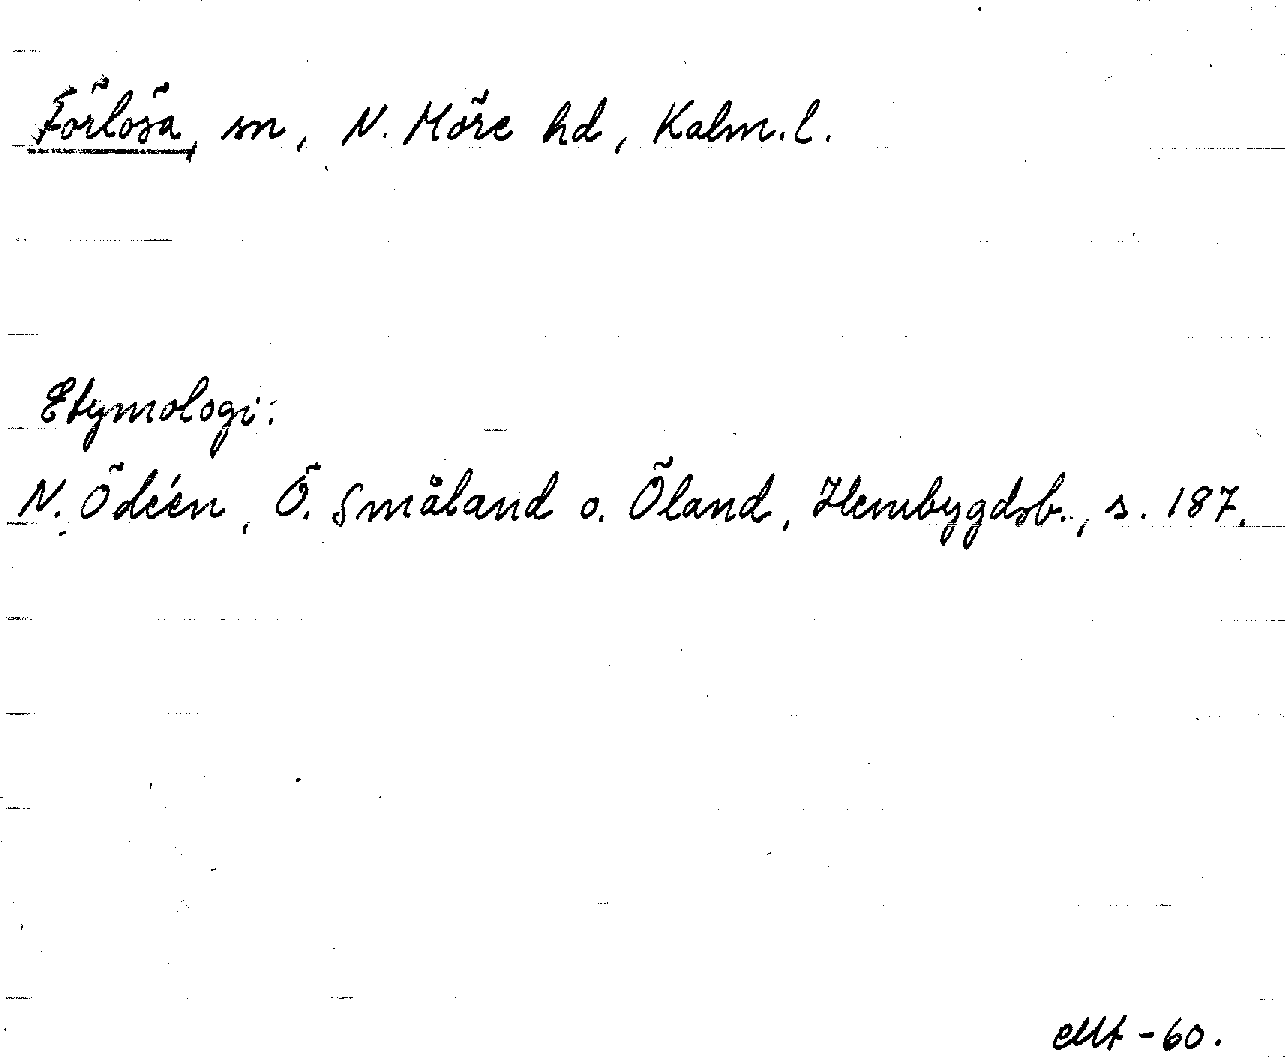 Förlösa, sn, N. Möre hd, Kalm. l.
Etymologi:
N. Ödéen, Ö. Småland o. Öland, Hembygdsb., s. 187.
-60.